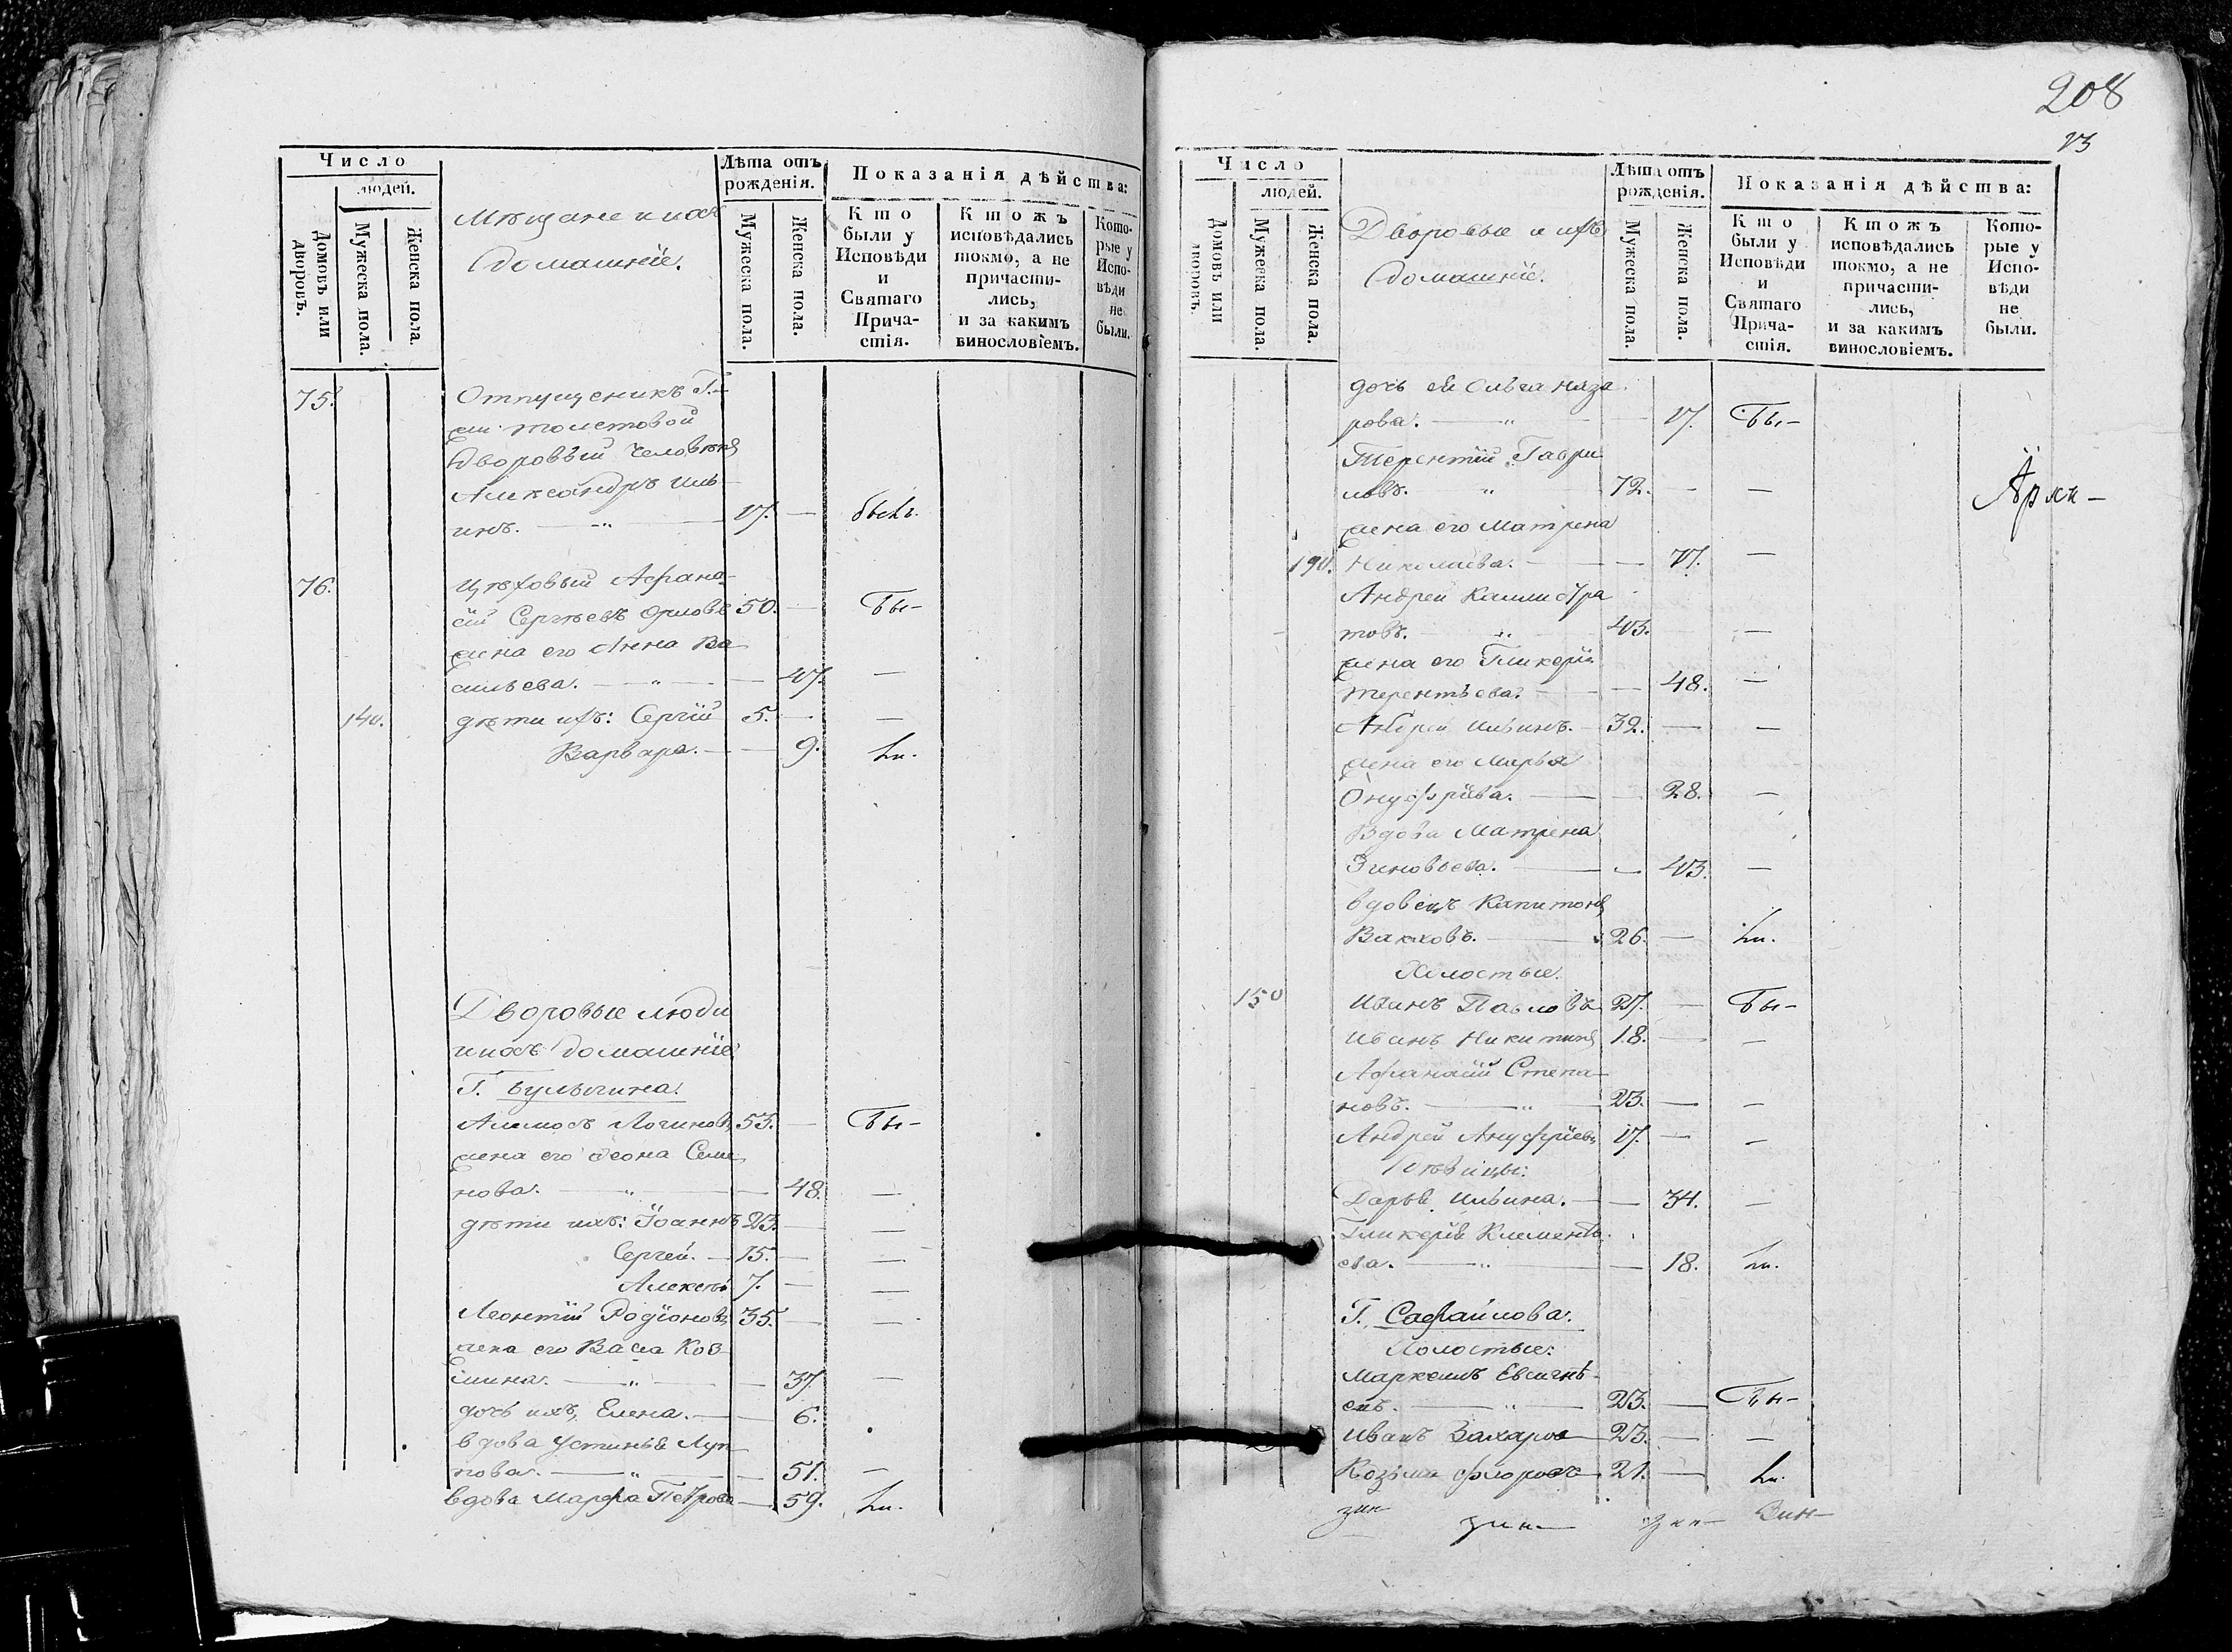 Число
людей.
Домовъ или дворовъ.
Мужеска пола.
Женска пола.
Мѣщане и ихъ
домашніе.
Лѣта отъ рожденія.
Мужеска пола.
Женска пола.
Показанія дѣйства:
Кто были у Исповѣди и Святаго Причастія.
Ктожъ исповѣдались токмо, а не причастились, и за какимъ винословіемъ.
Которые у Исповѣди не были.
75. Отпущеникъ Г-
жи Толстовой
Дворовый человѣкъ
Александръ Иль
инъ. — " — 17. — былъ.
76. Цѣховый Афана-
сій Сергѣевъ Орловъ 50. — Бы-
жена его Анна Ва
сильева. — " — — 47. —
140. дѣти ихъ: Сергій 5. — —
Варвара. — — 9. ли.
Дворовые люди
и ихъ домашніе
Г. Булыгина.
Логиновъ 53. — Бы-
жена его Семе
нова. — " — — 48. —
дѣти ихъ: Іоаннъ 23. — —
Сергей. — 15. — —
Алексѣй 7. — —
Леонтій Родіоновъ 35. — —
жена его Васса Коз
мина. — " — — 37. —
дочь ихъ, Елена. — — 6.
вдова Устинья Луп
пова. — " — — 51. —
вдова Марфа Петрова — 59. ли.
208
13
Число
людей.
Домовъ или дворовъ.
Мужеска пола.
Женска пола.
Дворовые и ихъ
домашніе.
Лѣта отъ рожденія.
Мужеска пола.
Женска пола.
Показанія дѣйства:
Кто были у Исповѣди и Святаго Причастія.
Ктожъ исповѣдались токмо, а не причастились, и за какимъ винословіемъ.
Которые у Исповѣди не были.
дочь ея Ольга Наза
рова. — " — — 17. Бы-
Терентій Гаври
ловъ. " 72. — —
жена его Матрена
190. Николаева. — — 71. —
Андрей Каллистра
товъ. " 43. — —
жена его Гликерія
Терентьева. — — 48. —
Андрей Ильинъ. — 32. — —
жена его Марья
Онуфріева. — — 28. —
Вдова Матрена
Зиновьева. — — 43. —
вдовецъ Капитонъ
26. — ли.
Холостые.
150 Иванъ Павловъ 27. — Бы-
Иванъ Никитинъ 18. — —
Афанасій Степа-
новъ. — " — 23. — —
Андрей Ануфріевъ 17. — —
Дѣвицы:
Дарья Ильина. — — 34. —
Гликерія Клементь
ева. — " — — 18. ли.
Г.
Холостые:
Маркеллъ Евсигнѣ-
евъ. — " — 23. — Бы-
Иванъ Захаровъ 23. — —
Козьма Флоровъ 21. — ли.